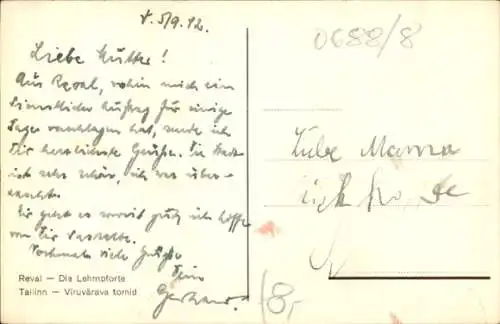 5/9.42.
Liebe Mutter!
Aus Reval, wohin mich ein
dienstlicher Auftrag für einige
Tage verschlagen hat, sende ich
Dir herzlichste Grüße. Die Stadt
ist sehr schön, ich war über-
rascht.
Dir geht es soweit gut, ich hoffe
von Dir dasselbe.
Nochmals viele Grüße
Dein
Gerhard.
Reval — Die Lehmpforte
Tallinn — Viruvärava tornid
0688/8
Mama
8,-